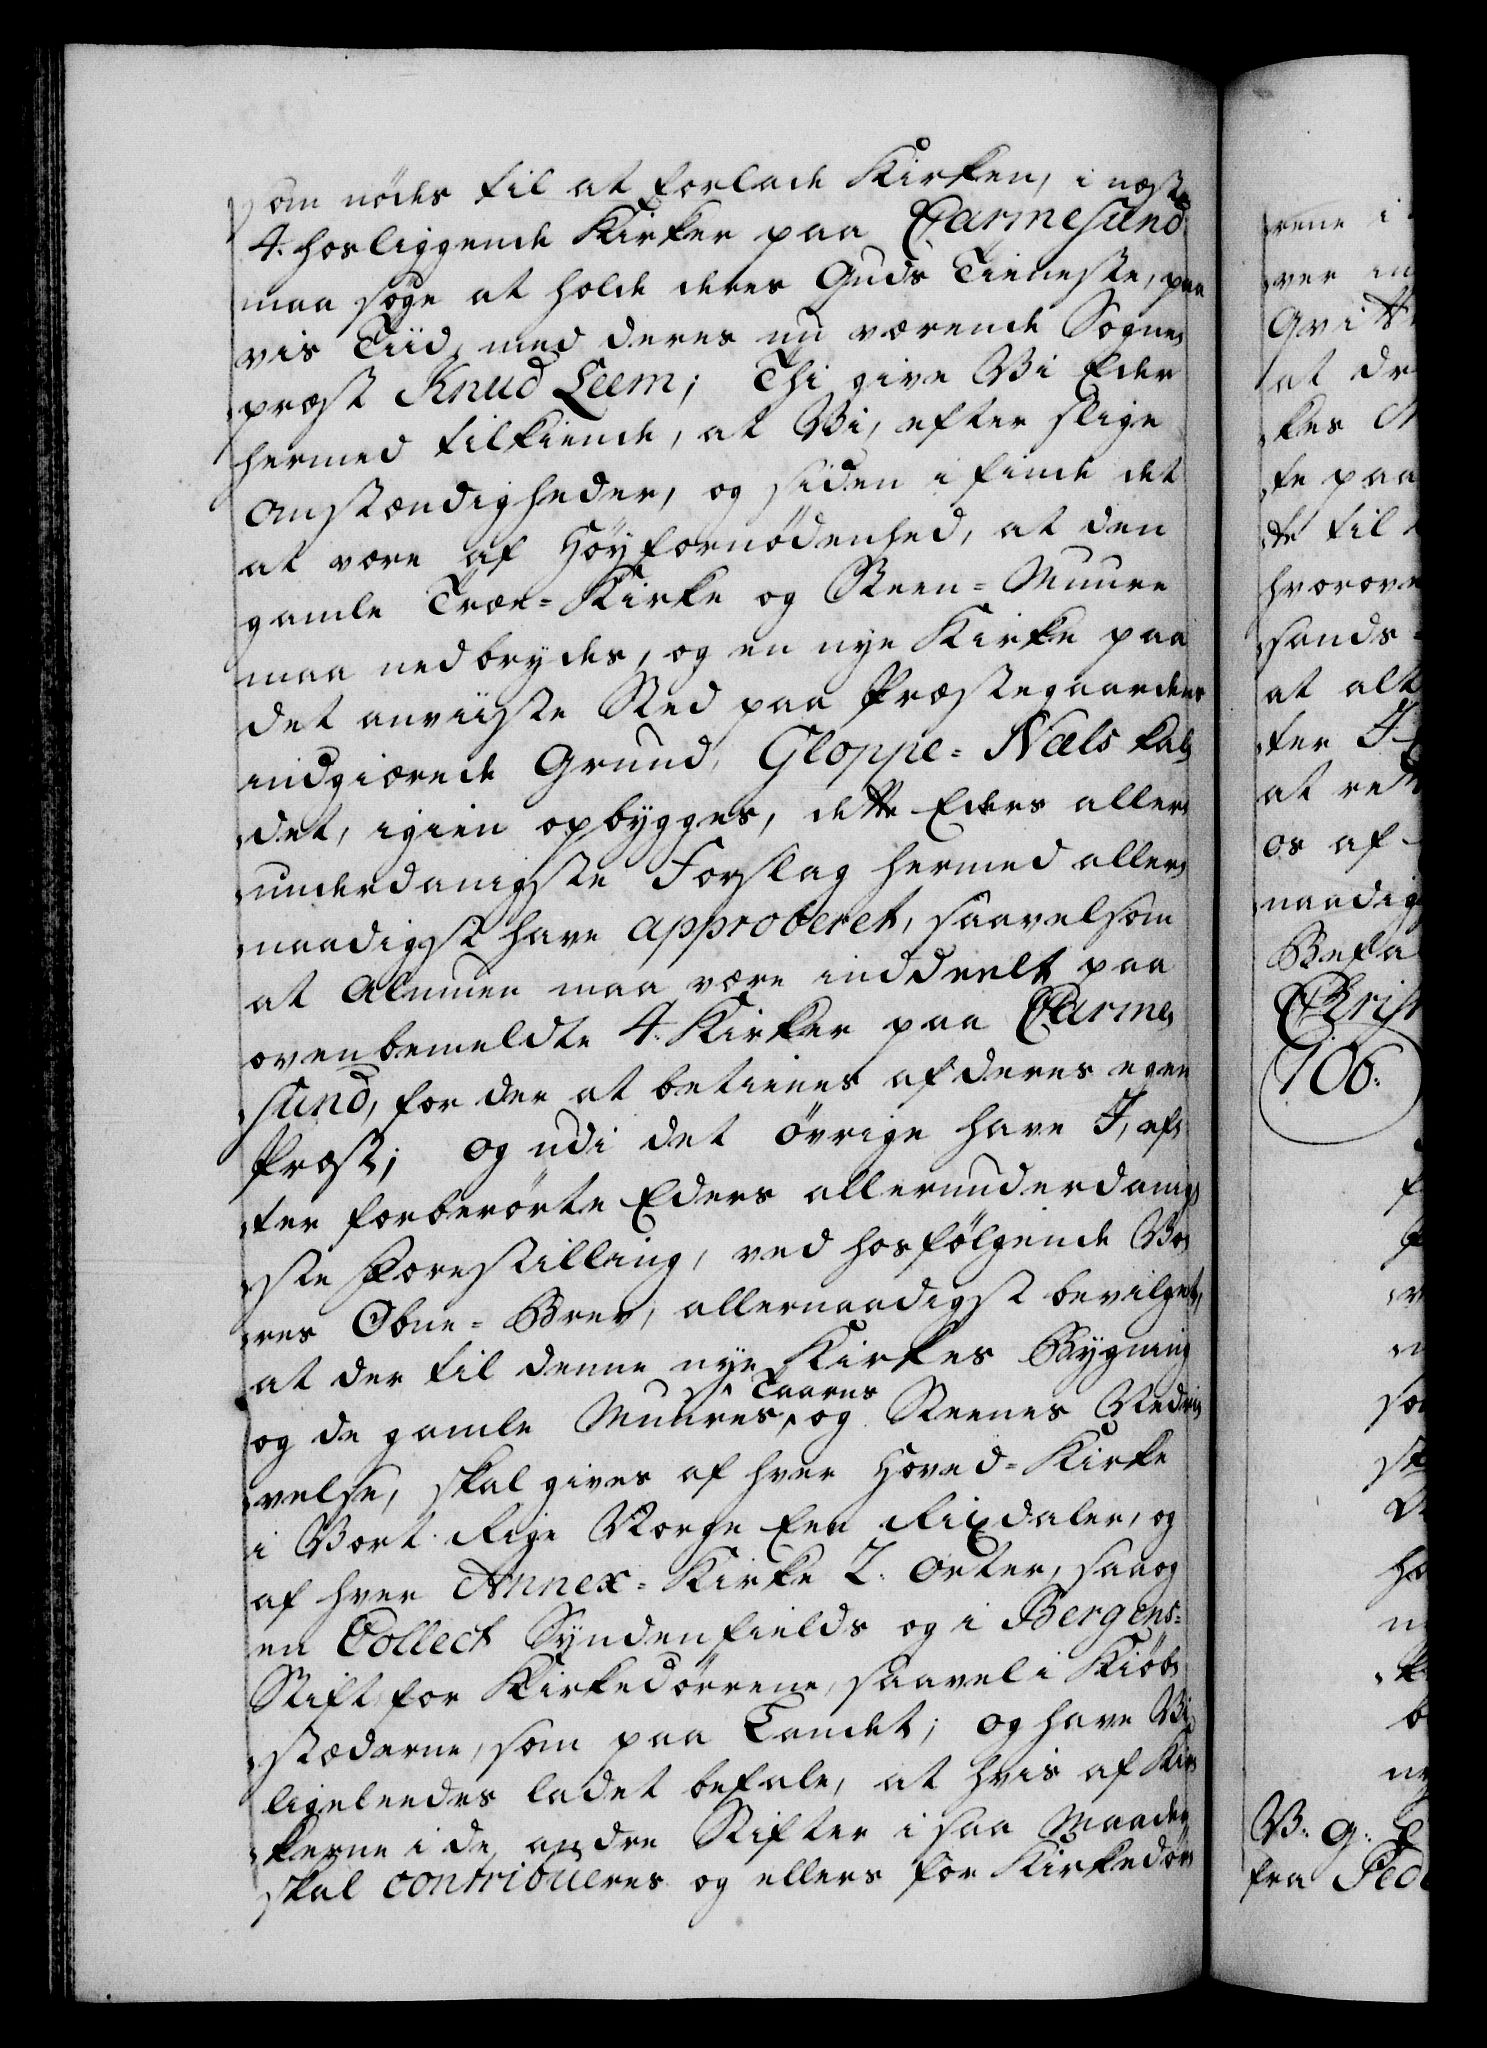 som nödes til at forlade Kirken, i næst
4. hosliggende Kirker paa Carmesund
maa söge at holde deres Guds Tieneste, paa
vis Tiid, med deres nu værende Sogne,
præst Knud Leem; Thi give Vi Eder
hermed tilkiende, at Vi, efter slige
Omstændigheder, og siden i finde det
at være af Höyfornödenhed, at den
gamle Træe-Kirke og Steen-Muure
maa nedbrydes, og en nye Kirke paa
det anviiste Sted paa Præstegaardens
indgiærede Grund, Gloppe-Næls kal,
det, igien opbygges, dette Eders aller,
underdanigste Forslag hermed aller,
naadigst have approberet, saavelsom
at Almuen maa være inddeelt paa
ovenbemeldte 4. Kirker paa Carme,
sund, for der at betienes af deres egen
Præst; og udi det övrige have I, ef,
ter forberörte Eders allerunderdanig,
ste Forestilling, ved hosfölgende Vo,
res Obne-Brev, allernaadigst bevilget,
at der til denne nye Kirkes Bygning
og de gamle Muures, Taarns og Steenes Nedri,
velse, skal gives af hver Hoved-Kirke
i Vort Rige Norge Een Rixdaler, og
af hver Annex-Kirke 2. Orter, saa og
en Collect Syndenfields og i Bergens-
Stift for Kirkedörrene, saavel i Kiöb,
stæderne, som paa Landet; og have Vi
ligeleedes ladet befale, at hvis af Kir,
kerne i de andre Stifter i saa Maader
skal contribueres og ellers for Kirkedör,
rene i
ver in
at
kes
te paa
de til
hvorove
sands-
at alt
ter
at
os af
naadig
Befa
Christ
106.
V. G.
fra Ped